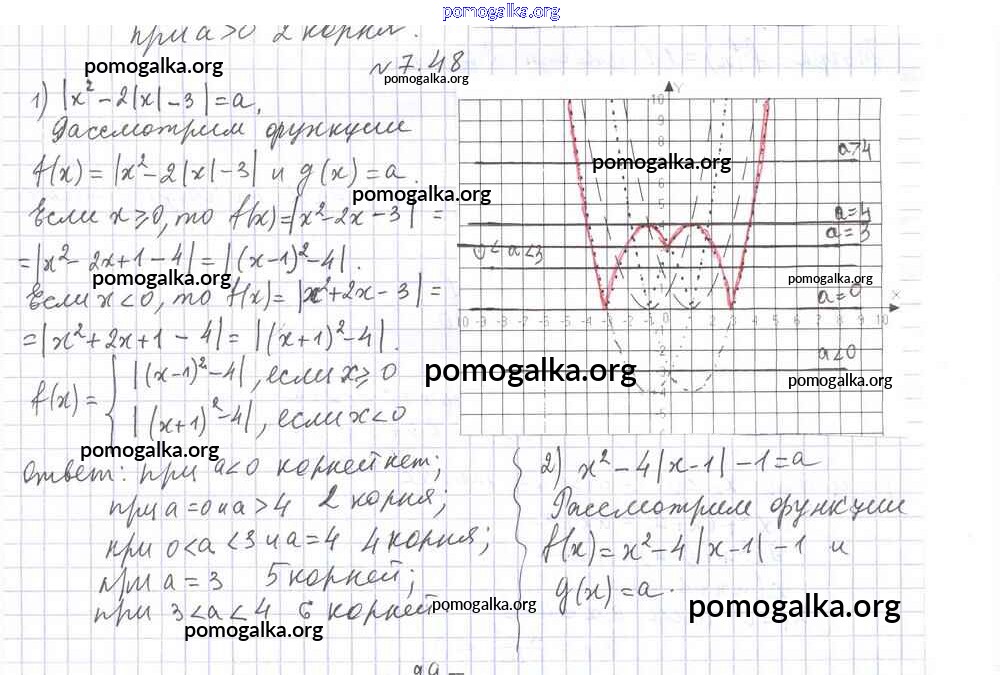 pomogalka.org
при a>0 2 корня.
pomogalka.org
№7.48
pomogalka.org
1) |x²-2|x|-3|=a.
Рассмотрим функции
f(x)=|x²-2|x|-3| и g(x)=a.
pomogalka.org
Если x≥0, то f(x)=|x²-2x-3|=
=|x²-2x+1-4|=|(x-1)²-4|.
pomogalka.org
Если x<0, то f(x)=|x²+2x-3|=
=|x²+2x+1-4|=|(x+1)²-4|.
f(x)={|(x-1)²-4|, если x≥0
|(x+1)²-4|, если x<0
pomogalka.org
Ответ: при a<0 корней нет;
при a=0 и a>4 2 корня;
при 0<a<3 и a=4 4 корня;
при a=3 5 корней;
при 3<a<4 6 корней
pomogalka.org
pomogalka.org
Y
10
9
8
pomogalka.org
a>4
a=4
a=3
0<a<3
pomogalka.org
a=0
x
-10 -9 -8 -7 -6 -5 -4 -3 -2 -1 0 1 2 3 4 5 6 7 8 9 10
a<0
pomogalka.org
pomogalka.org
2) x²-4|x-1|-1=a
Рассмотрим функции
f(x)=x²-4|x-1|-1 и
g(x)=a.
pomogalka.org